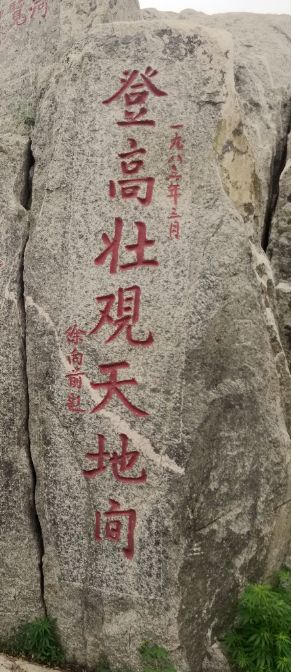 一九八二年三月
登高壮观天地间
徐向前题